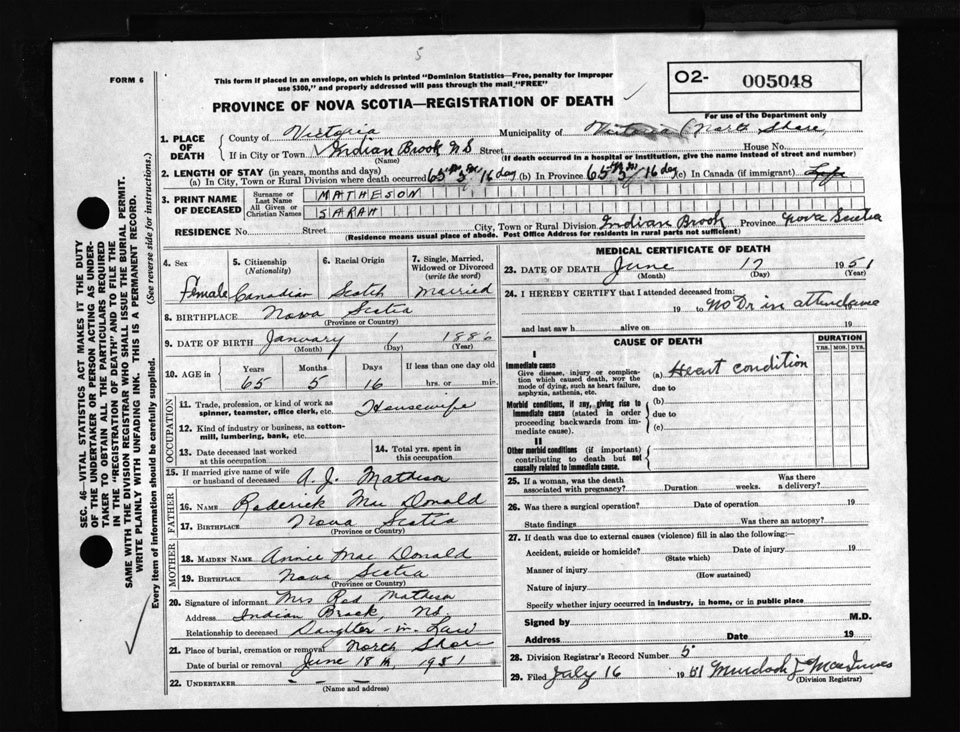 5
FORM 6
This form if placed in an envelope, on which is printed "Dominion Statistics—Free, penalty for improper
use $300," and properly addressed will pass through the mail "FREE"
O2- 005048
For use of the Department only
PROVINCE OF NOVA SCOTIA—REGISTRATION OF DEATH
SEC. 46—VITAL STATISTICS ACT MAKES IT THE DUTY
OF THE UNDERTAKER OR PERSON ACTING AS UNDER-
TAKER TO OBTAIN ALL THE PARTICULARS REQUIRED
IN THE "REGISTRATION OF DEATH" AND TO FILE THE
SAME WITH THE DIVISION REGISTRAR WHO SHALL ISSUE THE BURIAL PERMIT.
WRITE PLAINLY WITH UNFADING INK. THIS IS A PERMANENT RECORD.
Every item of information should be carefully supplied. (See reverse side for instructions.)
1. PLACE OF DEATH County of Victoria Municipality of Victoria (North Shore
If in City or Town Indian Brook NS Street House No.
(Name) (If death occurred in a hospital or institution, give the name instead of street and number)
2. LENGTH OF STAY (in years, months and days)
(a) In City, Town or Rural Division where death occurred 65 yr 5 m 16 day (b) In Province 65 yr 5 m 16 day (c) In Canada (if immigrant) Life
3. PRINT NAME OF DECEASED Surname or Last Name MATHESON
All Given or Christian Names SARAH
RESIDENCE No. Street City, Town or Rural Division Indian Brook Province Nova Scotia
(Residence means usual place of abode. Post Office Address for residents in rural parts not sufficient)
4. Sex 5. Citizenship (Nationality) 6. Racial Origin 7. Single, Married, Widowed or Divorced (write the word)
Female Canadian Scotch Married
8. BIRTHPLACE Nova Scotia
(Province or Country)
9. DATE OF BIRTH January 1886
(Month) (Day) (Year)
10. AGE in Years Months Days If less than one day old
65 5 16 hrs. or min.
OCCUPATION
11. Trade, profession, or kind of work as spinner, teamster, office clerk, etc. Housewife
12. Kind of industry or business, as cotton-mill, lumbering, bank, etc.
13. Date deceased last worked at this occupation 14. Total yrs. spent in this occupation
15. If married give name of wife or husband of deceased A. J. Matheson
FATHER
16. NAME Roderick Mac Donald
17. BIRTHPLACE Nova Scotia
(Province or Country)
MOTHER
18. MAIDEN NAME Annie Mac Donald
19. BIRTHPLACE Nova Scotia
(Province or Country)
20. Signature of informant Mrs Rod Matheson
Address Indian Brook, NS.
Relationship to deceased Daughter-in-Law
21. Place of burial, cremation or removal North Shore
Date of burial or removal June 18th, 1951
22. UNDERTAKER
(Name and address)
MEDICAL CERTIFICATE OF DEATH
23. DATE OF DEATH June 17 1951
(Month) (Day) (Year)
24. I HEREBY CERTIFY that I attended deceased from:
19 to No Dr in attendance
and last saw h alive on 19
CAUSE OF DEATH
DURATION
YRS. MOS. DYS.
I
Immediate cause
Give disease, injury or complication which caused death, NOT the mode of dying, such as heart failure, asphyxia, asthenia, etc.
(a) Heart condition
due to
Morbid conditions, if any, giving rise to immediate cause (stated in order proceeding backwards from immediate cause).
(b)
due to
(c)
II
Other morbid conditions (if important) contributing to death but not causally related to immediate cause.
25. If a woman, was the death associated with pregnancy? Duration weeks. Was there a delivery?
26. Was there a surgical operation? Date of operation 19
State findings Was there an autopsy?
27. If death was due to external causes (violence) fill in also the following:—
Accident, suicide or homicide? Date of injury 19
(State which)
Manner of injury
(How sustained)
Nature of injury
Specify whether injury occurred in industry, in home, or in public place
Signed by M.D.
Address Date 19
28. Division Registrar's Record Number 5
29. Filed July 16 1951 Murdoch J MacInnes
(Division Registrar)